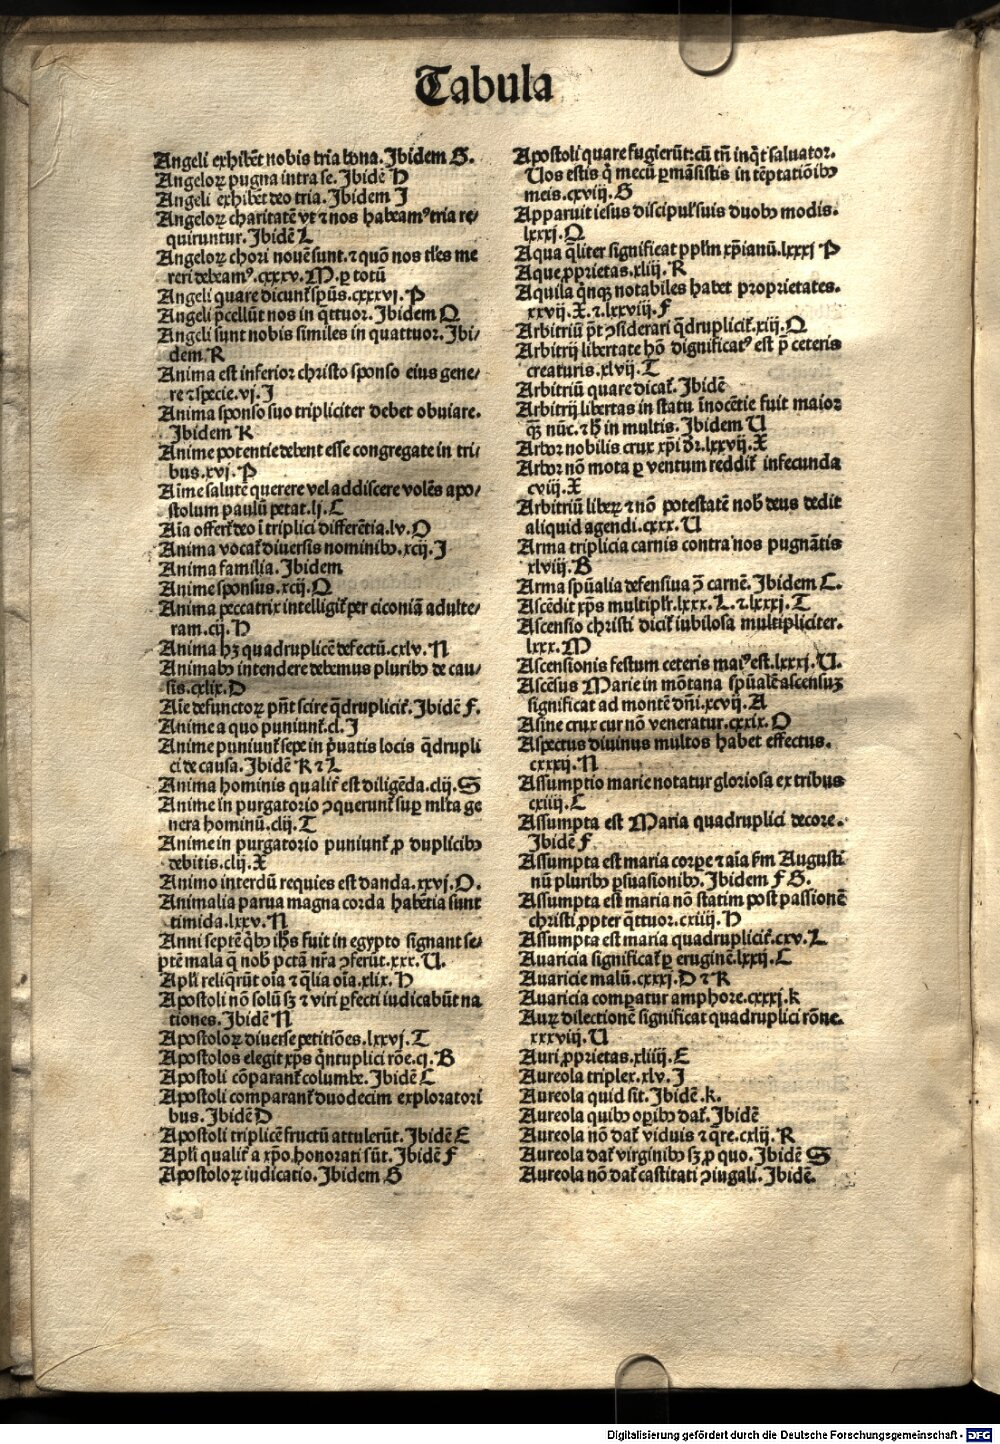 Tabula
Angeli exhibēt nobis tria bona. Ibidem G.
Angeloꝝ pugna intra se. Ibidē H
Angeli exhibēt deo tria. Ibidem I
Angeloꝝ charitatē vt ⁊ nos habeamꝰ tria re⸗
quiruntur. Ibidē L
Angeloꝝ chori nouē sunt. ⁊ quō nos tles me
reri debeamꝰ. cxxxv. M. ꝑ totū
Angeli quare dicunt̄ spūs. cxxxvj. P
Angeli p̄cellūt nos in q̄ttuor. Ibidem Q
Angeli sunt nobis similes in quattuor. Ibi⸗
dem R
Anima est inferior christo sponso eius gene⸗
re ⁊ specie. vj. I
Anima sponso suo tripliciter debet obuiare.
Ibidem K
Anime potentie debent esse congregate in tri⸗
bus. xvj. P
Aīme salutē querere vel addiscere volēs apo⸗
stolum paulū petat. lj. C
Aīa offert̄ deo ī triplici differētia. lv. O
Anima vocat̄ diuersis nominibꝰ. xcij. I
Anima familia. Ibidem
Anime sponsus. xcij. Q
Anima peccatrix intelligit̄ per ciconiā adulte⸗
ram. cij. H
Anima hꝫ quadruplicē defectū. cxlv. N
Animabꝰ intendere debemus pluribꝰ de cau⸗
sis. cxlix. D
Aīe defunctoꝝ pn̄t scire q̄druplicit̄. Ibidē F.
Anime a quo puniunt̄. cl. I
Anime puniunt̄ sepe in p̄uatis locis q̄drupli
ci de causa. Ibidē K ⁊ L
Anima hominis qualit̄ est diligēda. clij. S
Anime in purgatorio ꝯquerunt̄ suꝑ ml̄ta ge
nera hominū. clij. T
Anime in purgatorio puniunt̄ ꝓ duplicibꝰ
debitis. clij. X
Animo interdū requies est danda. xxvj. O.
Animalia parua magna corda habētia sunt
timida. lxxv. N
Anni septē q̄bꝰ ih̄s fuit in egypto signant se⸗
ptē mala q̄ nob̄ pctā nr̄a ꝯferūt. xxx. U.
Apl̄i reliq̄rūt oīa ⁊ q̄lia oīa. xlix. H
Apostoli nō solū sꝫ ⁊ viri ꝑfecti iudicabūt na
tiones. Ibidē N
Apostoloꝝ diuerse petitiōes. lxxvj. T
Apostolos elegit xp̄s q̄ntuplici rōe. cj. B
Apostoli cōparant̄ columbe. Ibidē C
Apostoli comparant̄ duodecim exploratori
bus. Ibidē D
Apostoli triplicē fructū attulerūt. Ibidē E
Apl̄i qualit̄ a xp̄o honorati sūt. Ibidē F
Apostoloꝝ iudicatio. Ibidem G
Apostoli quare fugierūt: cū tn̄ inq̄t saluator.
Uos estis q̄ mecū ꝑmāsistis in tēptatiōibꝰ
meis. cxviij. G
Apparuit iesus discipul̄ suis duobꝰ modis.
lxxxj. Q
Aqua q̄liter significat ppl̄m xp̄ianū. lxxxj P
Aque ꝓprietas. xliij. R
Aquila q̄nqꝫ notabiles habet proprietates.
xxvij. X. ⁊ lxxviij. F
Arbitriū pt̄ ꝯsiderari q̄druplicit̄. xiij. Q
Arbitrij libertate hō dignificatꝰ est p̄ ceteris
creaturis. xlvij. T
Arbitriū quare dicat̄. Ibidē
Arbitrij libertas in statu īnocētie fuit maior
q̄ꝫ nūc. ⁊ h̄ in multis. Ibidem U
Arbor nobilis crux xp̄i dr̄. lxxvij. X
Arbor nō mota ꝑ ventum reddit̄ infecunda
cviij. X
Arbitriū libeꝝ ⁊ nō potestatē nob̄ deus dedit
aliquid agendi. cxxx. U
Arma triplicia carnis contra nos pugnātis
xlviij. B
Arma spūalia defensiua ꝯ̄ carnē. Ibidem C.
Ascēdit xp̄s multiplr̄. lxxx. L. ⁊ lxxxj. T
Ascensio christi dicit̄ iubilosa multipliciter.
lxxx. M
Ascensionis festum ceteris maiꝰ est. lxxxj. U.
Ascēsus Marie in mōtana spūalē ascensuꝫ
significat ad montē dn̄i. xcvij. A
Asine crux cur nō veneratur. cxxix. O
Aspectus diuinus multos habet effectus.
cxxxij. N
Assumptio marie notatur gloriosa ex tribus
cxiiij. C
Assumpta est Maria quadruplici decore.
Ibidē F
Assumpta est maria corpe ⁊ aīa ẜm Augusti
nū pluribꝰ ꝑsuasionibꝰ. Ibidem F G.
Assumpta est maria nō statim post passionē
christi ꝓpter q̄ttuor. cxiiij. H
Assumpta est maria quadruplicit̄. cxv. L
Auaricia significat̄ ꝑ eruginē. lxxij. C
Auaricie malū. cxxxj. D ⁊ K
Auaricia comꝑatur amphore. cxxxj. k
Auꝝ dilectionē significat quadruplici rōne.
xxxviij. U
Auri ꝓprietas. xliiij. E
Aureola triplex. xlv. I
Aureola quid sit. Ibidē. k.
Aureola quibꝰ oꝑibꝰ dat̄. Ibidē
Aureola nō dat̄ viduis ⁊ q̄re. cxlij. R
Aureola dat̄ virginibꝰ sꝫ ꝓ quo. Ibidē S
Aureola nō dat̄ castitati ꝯiugali. Ibidē.
Digitalisierung gefördert durch die Deutsche Forschungsgemeinschaft - DFG